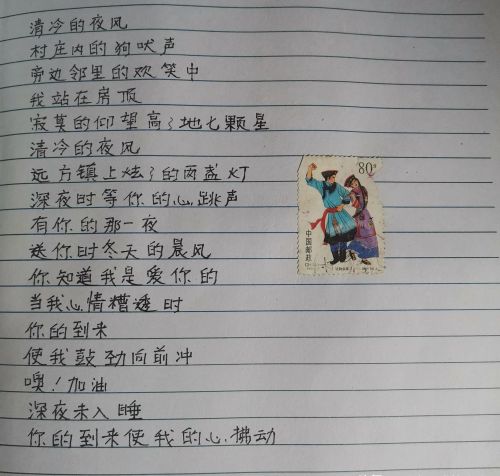 清冷的夜风
村庄内的狗吠声
旁边邻里的欢笑中
我站在房顶
寂莫的仰望高了地七颗星
清冷的夜风
远方镇上炫了的两盏灯
深夜时等你的心跳声
有你的那一夜
送你时冬天的晨风
你知道我是爱你的
当我心情糟透时
你的到来
使我鼓劲向前冲
噢！加油
深夜未入睡
你的到来使我的心拂动
80分
中国邮政